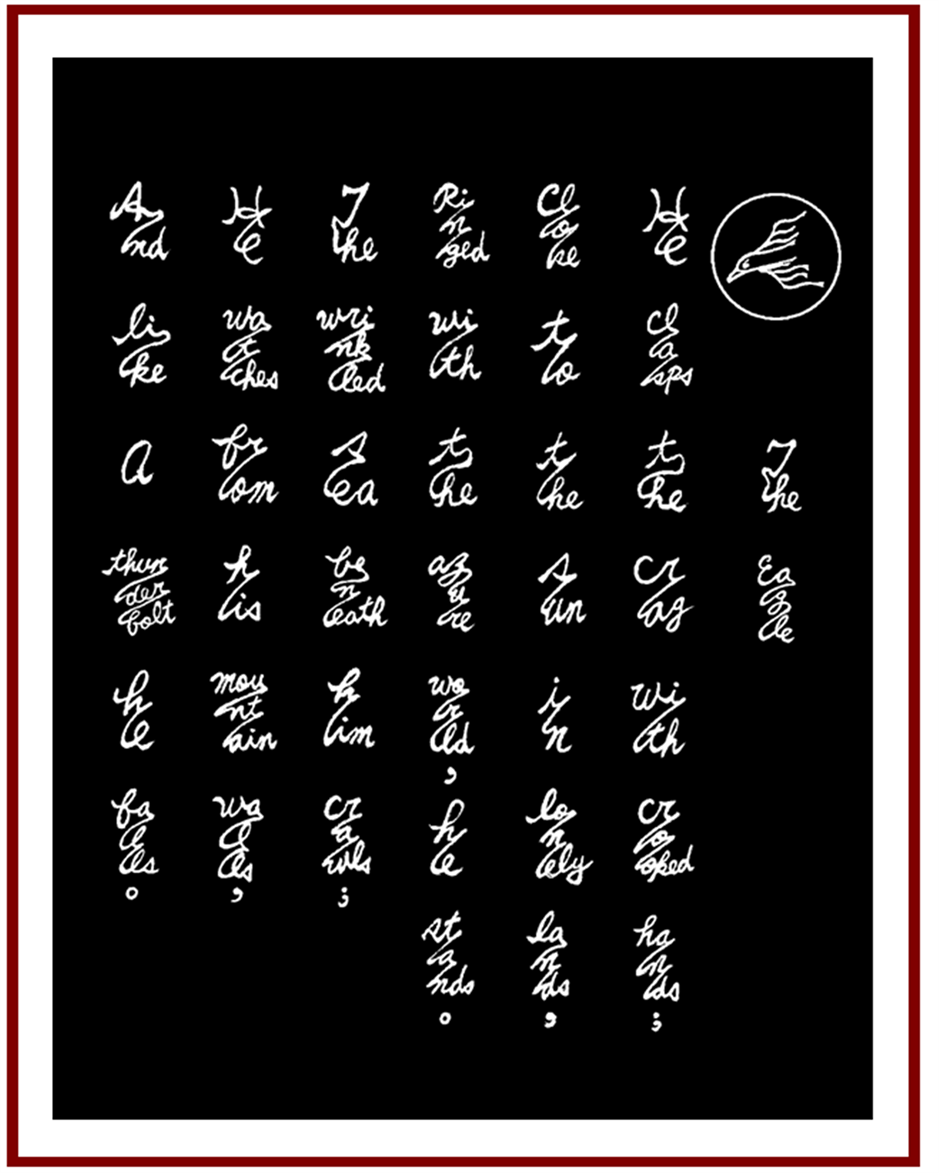 The Eagle
He clasps the crag with crooked hands;
Cloke to the sun in lonely lands,
Ringed with the azure world, he stands.
The wrinkled sea beneath him crawls;
He watches from his mountain walls,
And like a thunderbolt he falls.